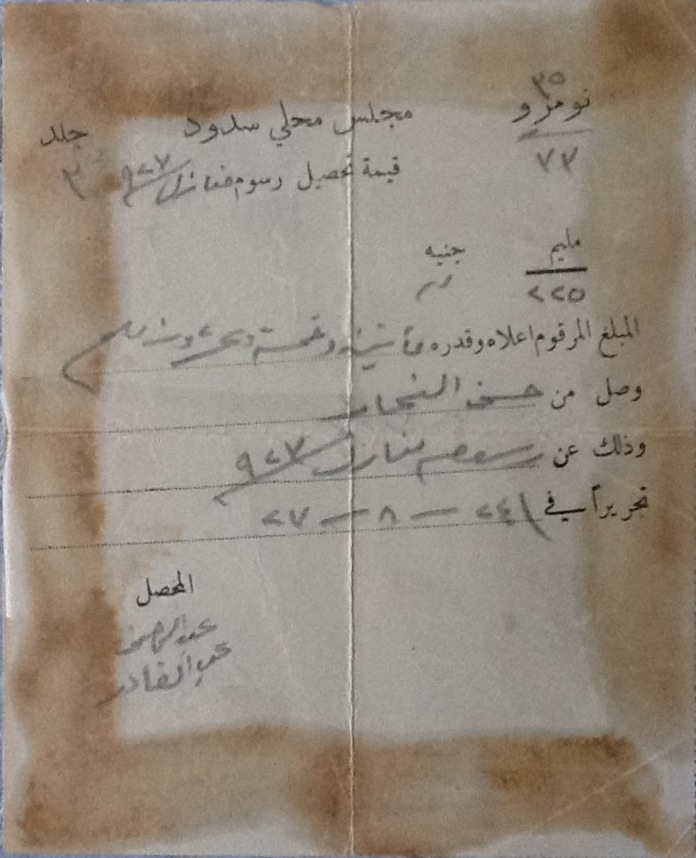 ٣٥
نومرو مجلس محلي سدود جلد
٧٣ قيمة تحصيل رسوم منازل ٩٢٧ ٣
مليم جنيه
٢٢٥
المبلغ المرقوم اعلاه وقدره مأتين وخمسة وعشرون ملم
وصل من حسن النجار
وذلك عن رسوم منازل ٩٢٧
تحريراً في ٢٤ - ٨ - ٢٧
المحصل
عبد الرحمن
عبد القادر